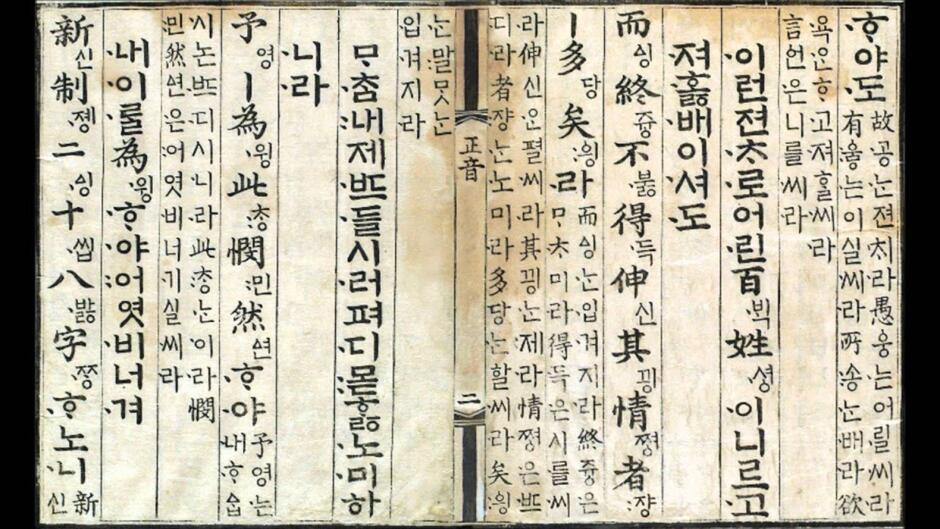 ᄒᆞ야도
故공ᄂᆞᆫ젼ᄎᆡ라愚웅는어릴씨라
有우ᇢ는이실씨라所송ᄂᆞᆫ배라欲
욕ᄋᆞᆫᄒᆞ고져ᄒᆞᆯ씨라
言언은니를씨라
이런젼ᄎᆞ로어린百ᄇᆡᆨ姓셩이니르고
져호ᇙ배이셔도
而ᅀᅵᆼ終즁不부ᇙ得득伸신其끵情쪙者쟝
ㅣ多당矣ᅌᅴᆼ라
而ᅀᅵᆼᄂᆞᆫ입겨지라終즁은
ᄆᆞᄎᆞ미라得득은시를씨
라伸신ᄋᆞᆫ펼씨라其끵는제라情쪙은ᄠᅳ
디라者쟝ᄂᆞᆫ노미라多당ᄂᆞᆫ할씨라矣ᅌᅴᆼ
正音
二
ᄂᆞᆫ말ᄆᆞᆺᄂᆞᆫ
입겨지라
ᄆᆞᄎᆞᆷ내제ᄠᅳ들시러펴디몯ᄒᆞᇙ노미하
니라
予영ㅣ為윙此ᄎᆞᆼ憫민然ᅀᅧᆫᄒᆞ야
予영는
내ᄒᆞᅀᆞᆸ
시논ᄠᅳ디시니라此ᄎᆞᆼᄂᆞᆫ이라憫
민然ᅀᅧᆫ은어엿비너기실씨라
내이ᄅᆞᆯ為윙ᄒᆞ야어엿비너겨
新신制졩二ᅀᅵᆼ十씹八바ᇙ字ᄍᆞᆼᄒᆞ노니
新
신